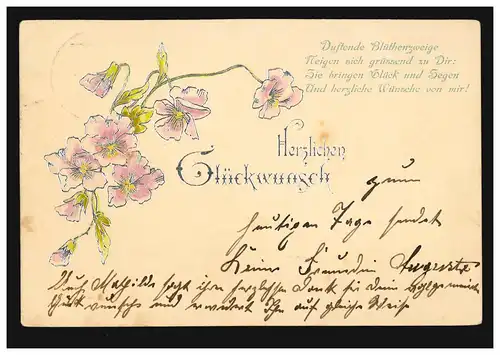 Duftende Blüthenzweige
Neigen sich grüssend zu Dir:
Sie bringen Glück und Segen
Und herzliche Wünsche von mir!
Herzlichen
Glückwunsch
zum
heutigen Tage sendet
Deine Freundin Auguste
Auch Mathilde sagt ihren herzlichen Dank für den
und erwidert Ihn auf gleiche Weise